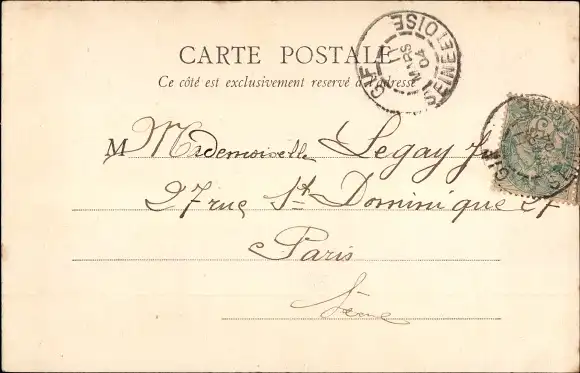 CARTE POSTALE
Ce côté est exclusivement reservé à l'adresse
GIF SEINE ET OISE
11 MARS 04
M Mademoiselle Legay
27 rue St Dominique 27
Paris
Seine
GIF